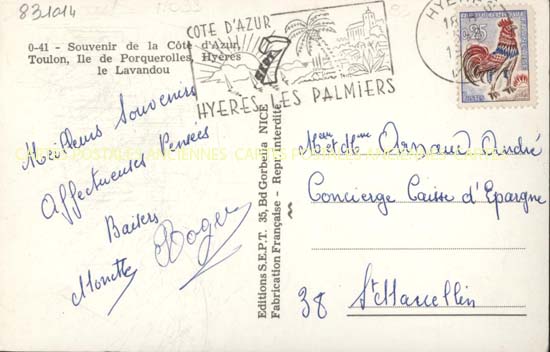 831014
0-41 - Souvenir de la Côte d'Azur
Toulon, Ile de Porquerolles, Hyères
le Lavandou
COTE D'AZUR
HYERES LES PALMIERS
HYERES
0,25
Meilleurs Souvenirs
Affectueuses Pensées
Baisers
Roger
Editions S.E.P.T. 35, Bd Gorbella NICE
Fabrication Française - Repr. interdite
CARTES POSTALES ANCIENNES
Mr et Mme Arnaud André
Concierge Caisse d'Epargne
38 St Marcellin